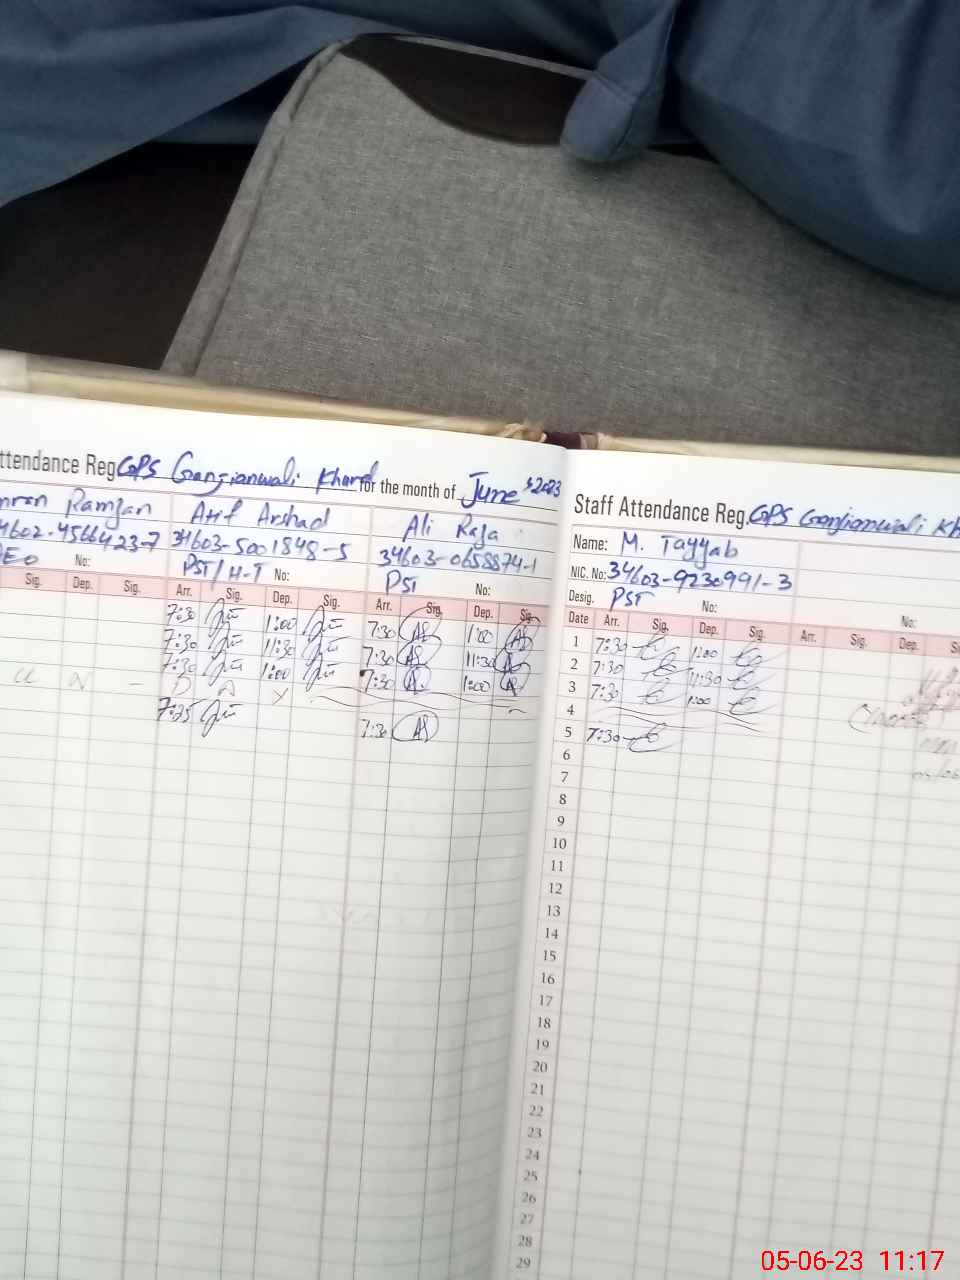 ttendance Reg GPS Gangianwali Khurd for the month of June, 2023
Ramzan Arif Arshad Ali Raza
4602-4566423-7 34603-5001848-5 34603-0658874-1
AEO No: PST/H-T No: PST No:
Sig. Dep. Sig. Arr. Sig. Dep. Sig. Arr. Sig. Dep. Sig.
7:30 1:00 7:30 1:00
7:30 11:30 7:30 11:30
7:30 1:00 7:30 1:00
7:25
7:30
Staff Attendance Reg. GPS Gangianwali Kh
Name: M. Tayyab
NIC. No: 34603-9230991-3
Desig. PST No: No:
Date Arr. Sig. Dep. Sig. Arr. Sig. Dep. S
1 7:30 1:00
2 7:30 11:30
3 7:30 1:00
4
5 7:30
6
7
8
9
10
11
12
13
14
15
16
17
18
19
20
21
22
23
24
25
26
27
28
29
05-06-23 11:17